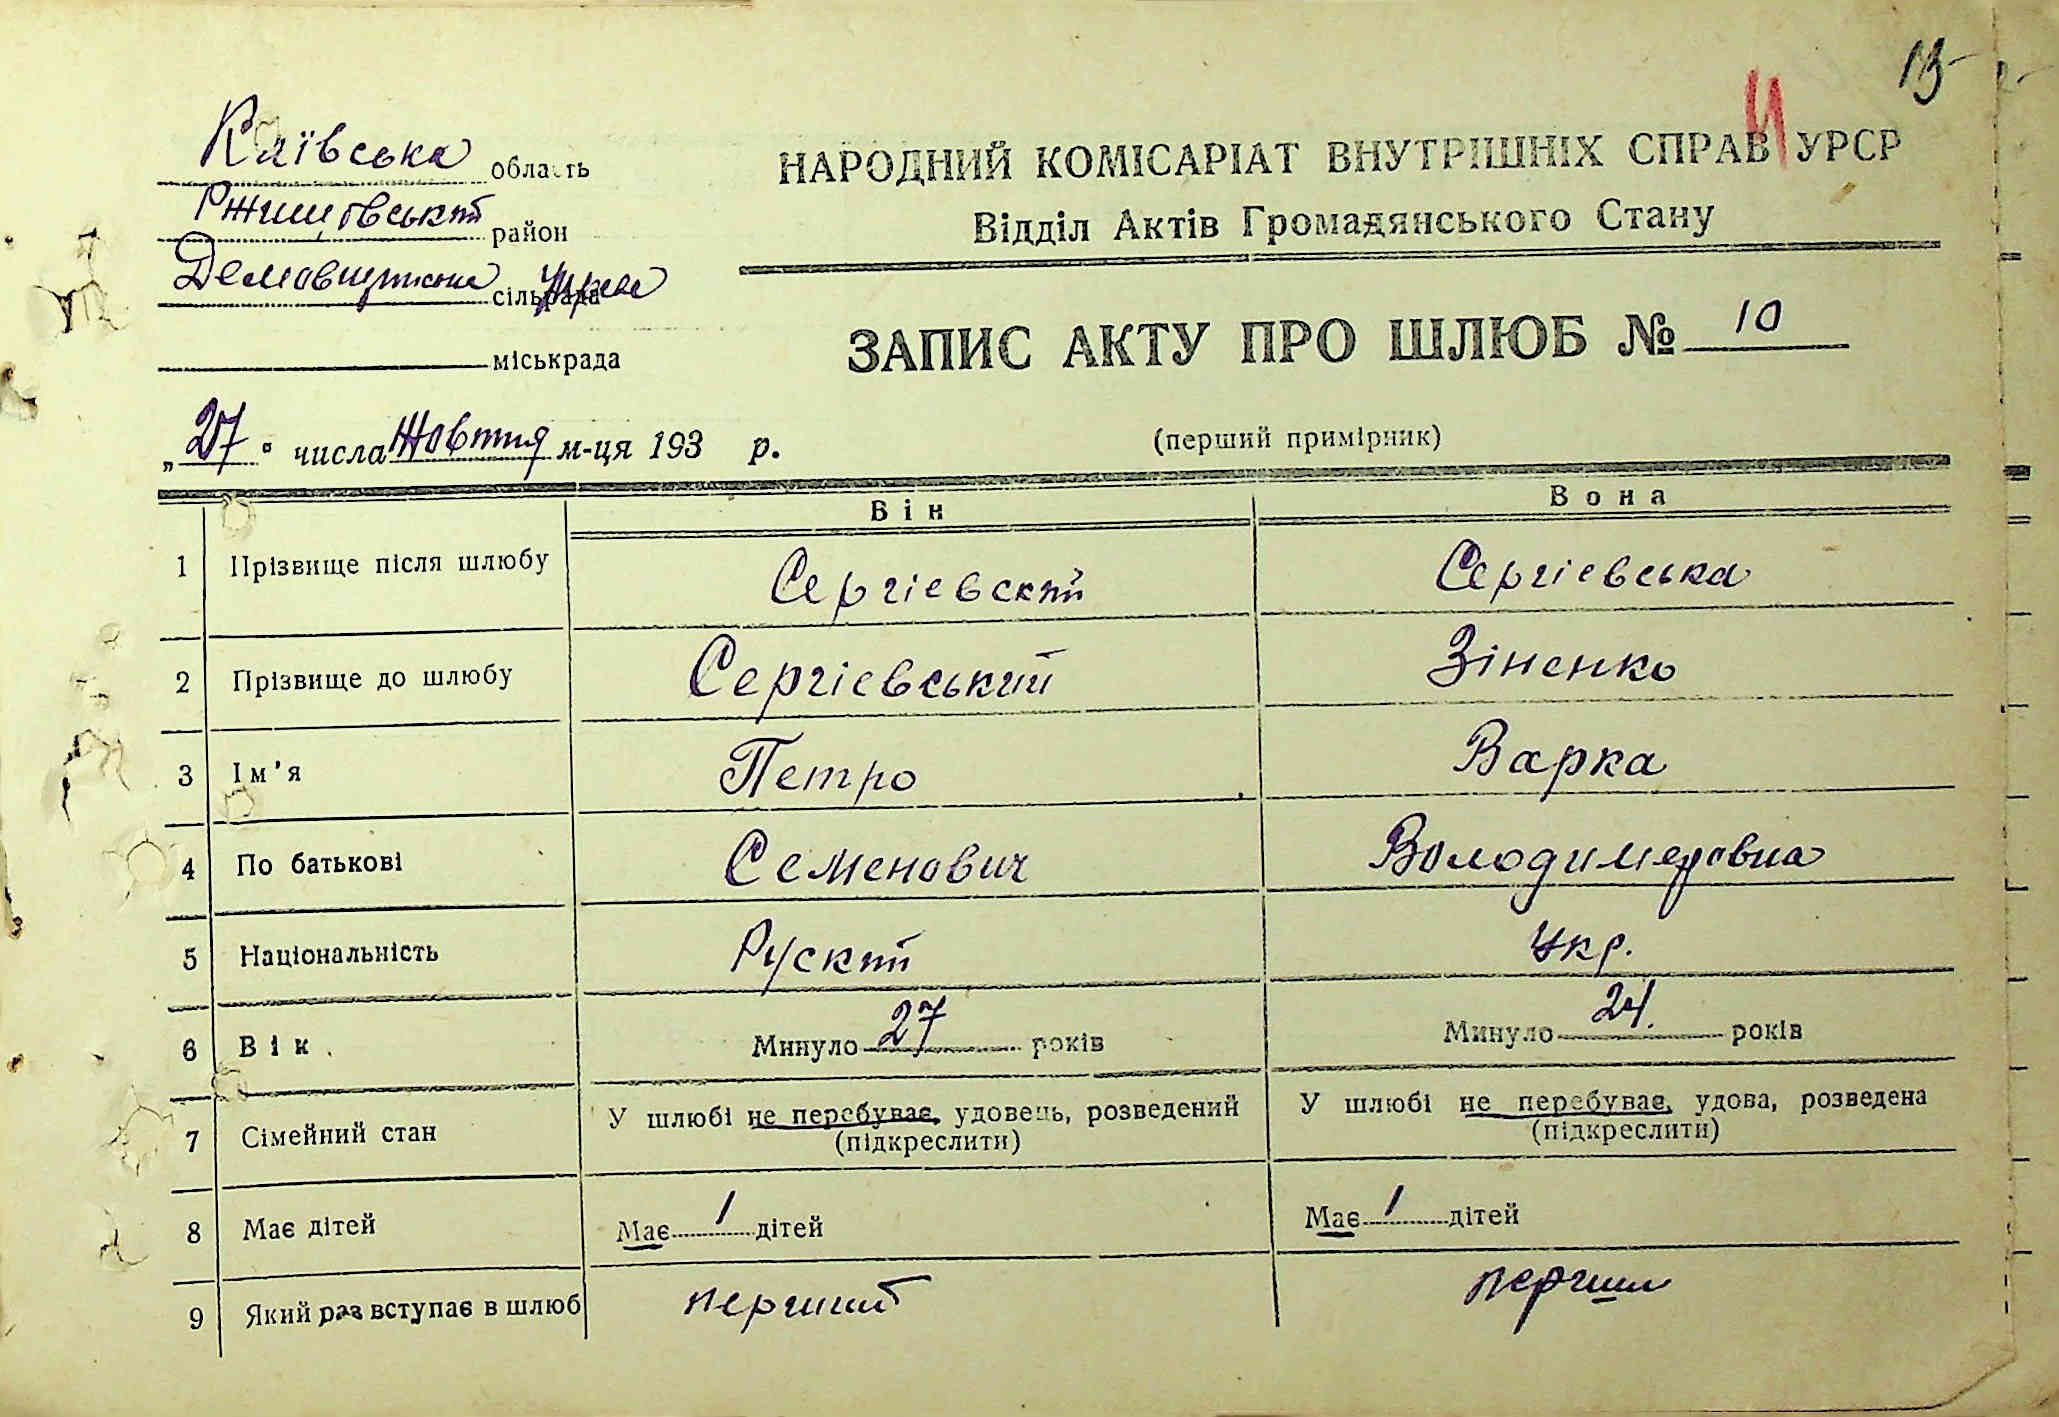 13
Київська область
Ржищівський район
сільрада
міськрада
НАРОДНИЙ КОМІСАРІАТ ВНУТРІШНІХ СПРАВ УРСР
Відділ Актів Громадянського Стану
ЗАПИС АКТУ ПРО ШЛЮБ № 10
(перший примірник)
„27" числа Жовтня м-ця 193 р.
Він Вона
1 Прізвище після шлюбу Сергієвский Сергієвська
2 Прізвище до шлюбу Сергієвський Зіненко
3 Ім'я Петро Варка
4 По батькові Семенович Володимеровна
5 Національність Руский Укр.
6 Вік Минуло 27 років Минуло 24. років
7 Сімейний стан У шлюбі не перебуває, удовець, розведений (підкреслити) У шлюбі не перебуває, удова, розведена (підкреслити)
8 Має дітей Має 1 дітей Має 1 дітей
9 Який раз вступає в шлюб перший перший